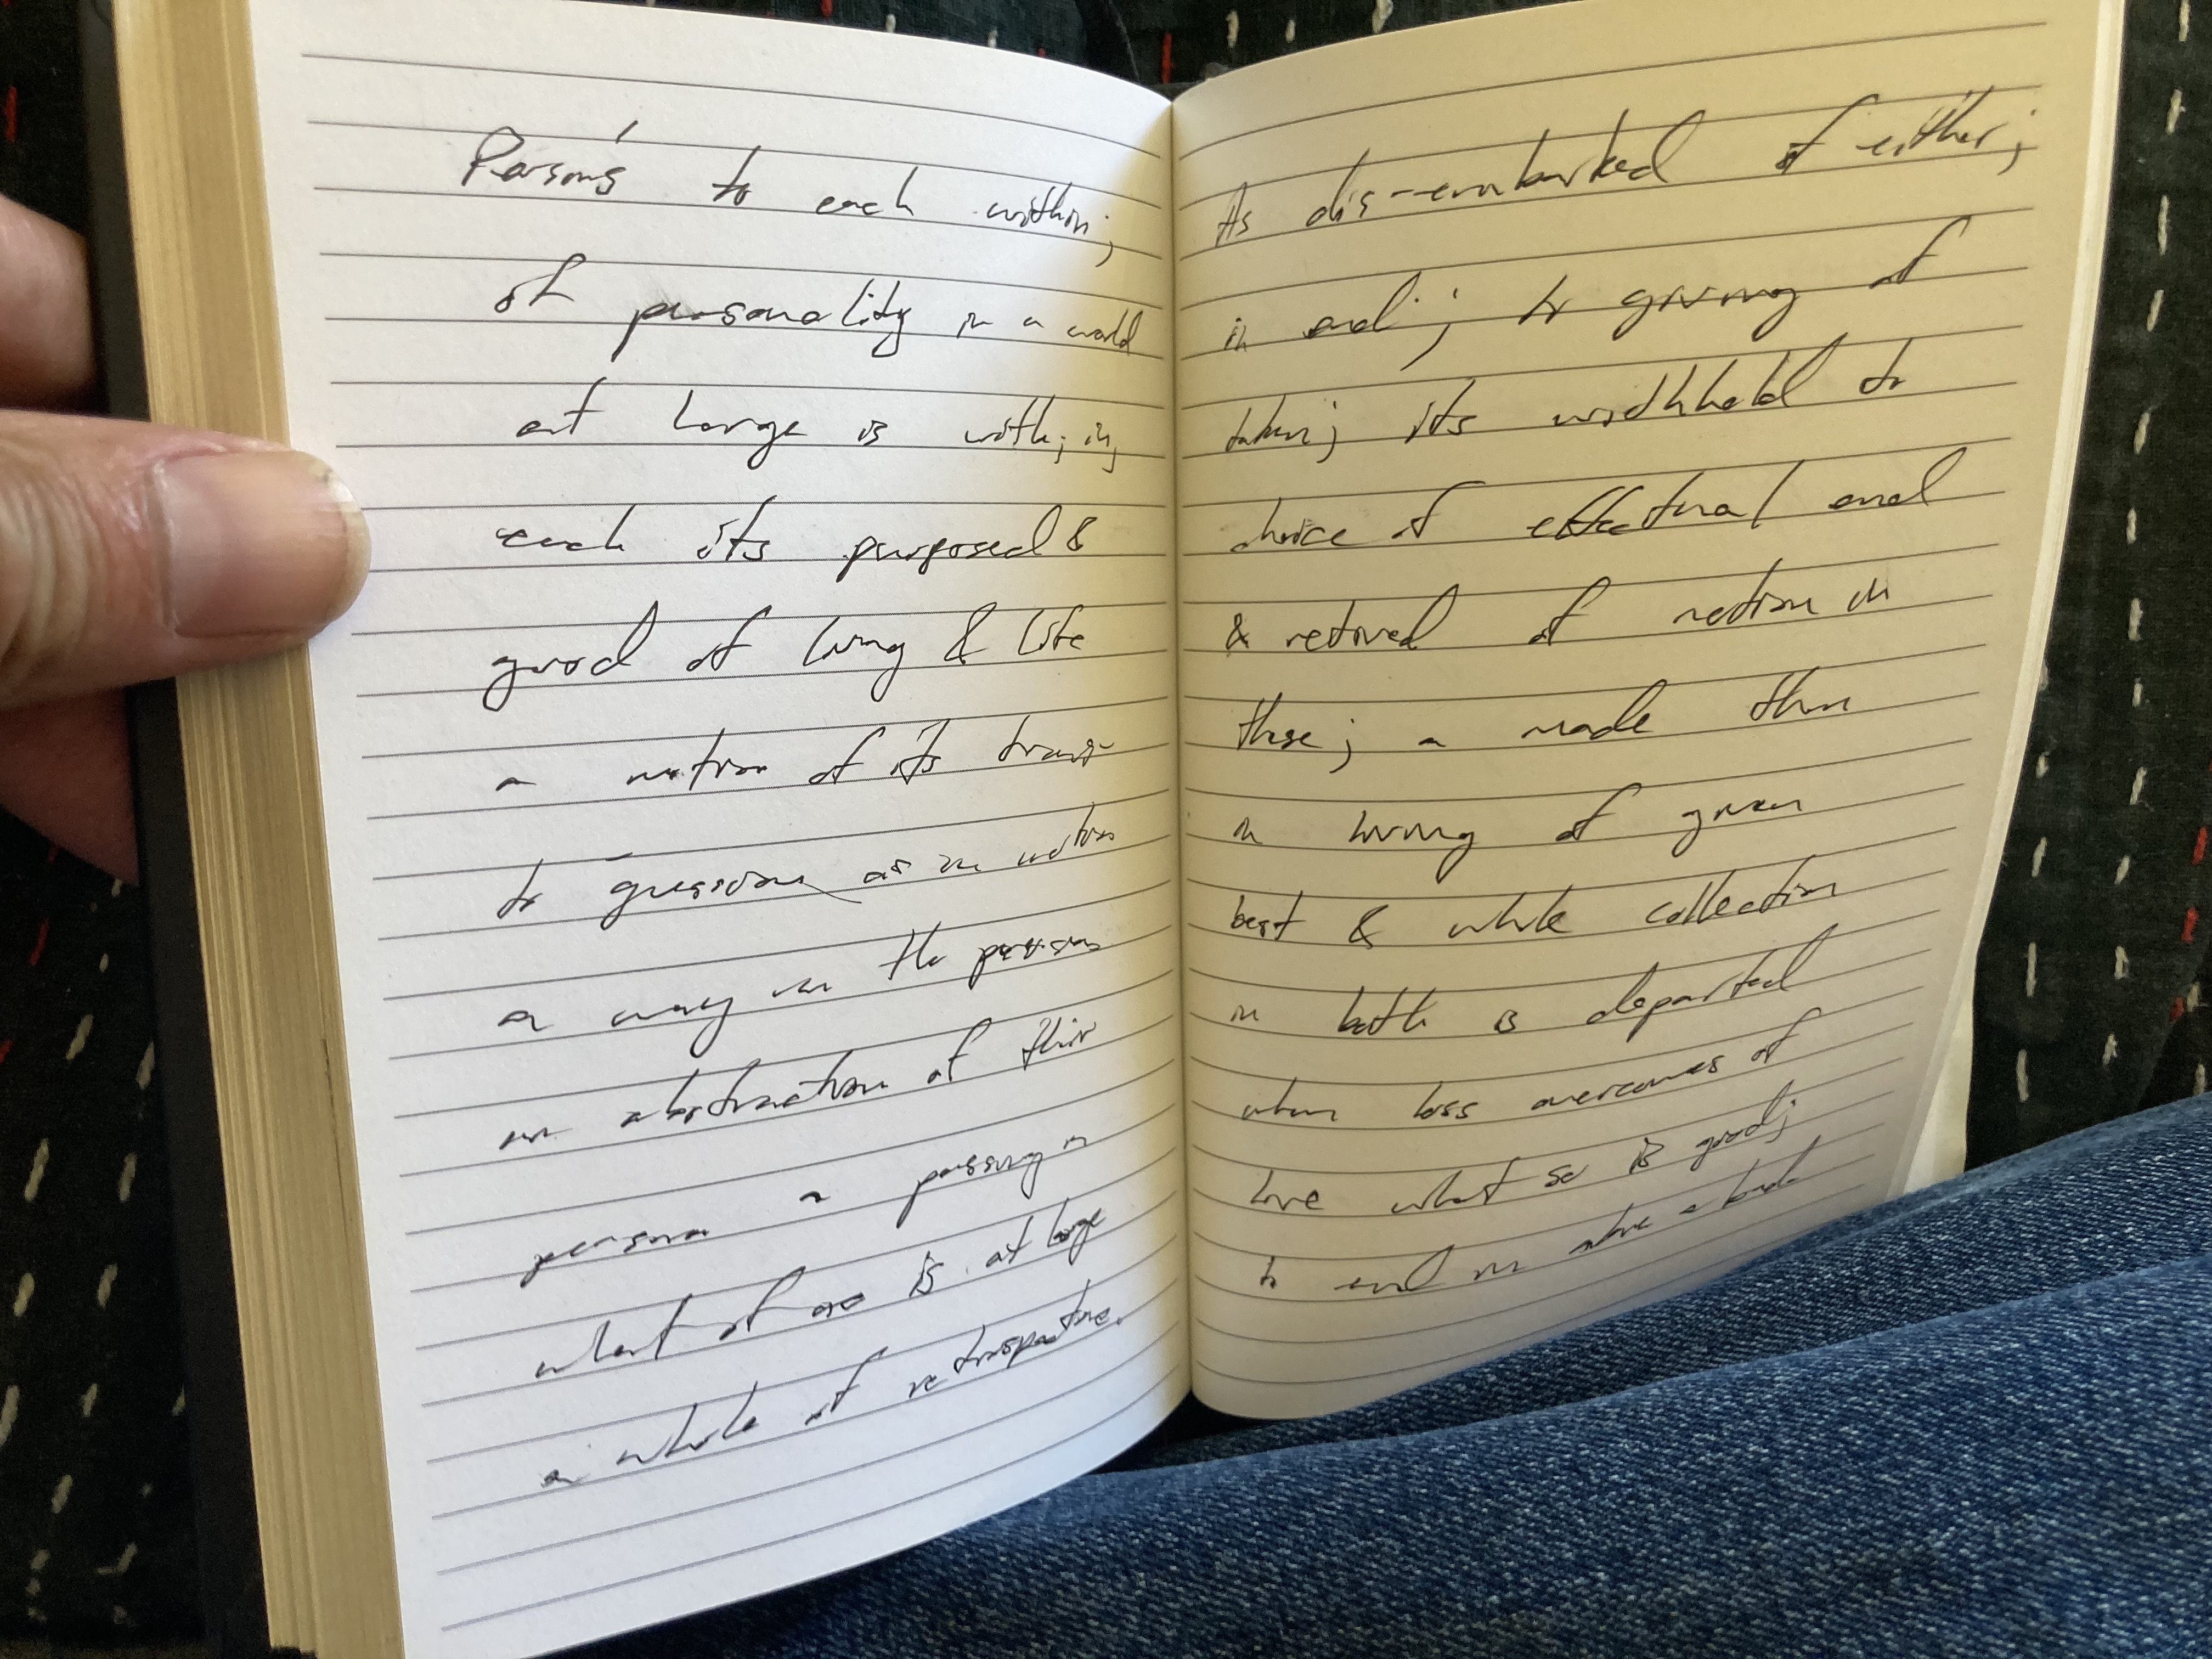 Person's to each within;
of personality in a world
at large is with; in,
each its purposed &
good of living & life
a notion of its trans-
to gression as in notion
a way in the person
an abstraction of their
person a passing in
what of one is at large
a whole of retrospective.
As dis-embarked of either;
in and; to giving of
taken; its withheld to
choice of effectual and
& retired of notion in
these; a made then
in living of given
best & whole collection
in both is departed
when loss overcomes of
love what so is good;
to end in where a